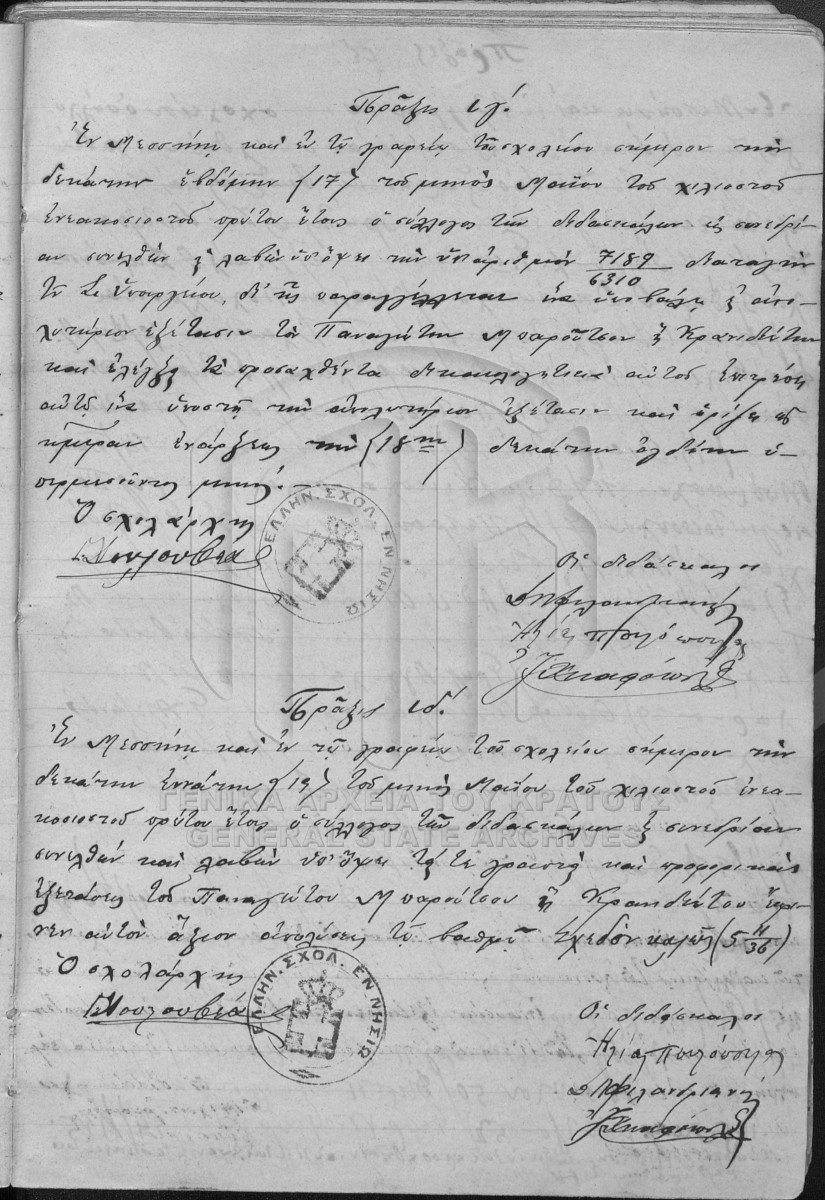 Πρᾶξις ιγ΄.
Ἐν Μεσσήνῃ καὶ ἐν τῷ γραφείῳ τοῦ σχολείου σήμερον τὴν
δεκάτην ἑβδόμην (17) τοῦ μηνὸς Μαΐου τοῦ χιλιοστοῦ
ἐνεακοσιοστοῦ πρώτου ἔτους ὁ σύλλογος τῶν διδασκάλων εἰς συνεδρί-
αν συνελθὼν καὶ λαβὼν ὑπ' ὄψει τὴν ὑπ' ἀριθμὸν 7189/6310 διαταγὴν
τοῦ Σ. Ὑπουργείου, δι' ἧς παραγγέλλεται ἵνα ὑποβάλῃ εἰς ἀπο-
λυτήριον ἐξέτασιν τὸν Παναγιώτην Μπαροῦτσον ἢ Κρανιδιώτην
καὶ ἐλέγξας τὰ προσαχθέντα δικαιολογητικὰ αὐτοῦ ἐπιτρέπει
αὐτῷ ἵνα ὑποστῇ τὴν ἀπολυτήριον ἐξέτασιν καὶ ὁρίζει ὡς
ἡμέραν ἐνάρξεως τὴν (18ην) δεκάτην ὀγδόην
μηνός.
Ὁ σχολάρχης
ΕΛΛΗΝ. ΣΧΟΛ. ΕΝ ΝΗΣΙΩ
Οἱ διδάσκαλοι
Ἠλίας
Πρᾶξις ιδ΄.
Ἐν Μεσσήνῃ καὶ ἐν τῷ γραφείῳ τοῦ σχολείου σήμερον τὴν
δεκάτην ἐννάτην (19) τοῦ μηνὸς Μαΐου τοῦ χιλιοστοῦ ἐνεα-
κοσιοστοῦ πρώτου ἔτους ὁ σύλλογος τῶν διδασκάλων εἰς συνεδρίαν
συνελθὼν καὶ λαβὼν ὑπ' ὄψει τάς τε γραπτὰς καὶ προφορικὰς
ἐξετάσεις τοῦ Παναγιώτου Μπαρούτσου ἢ Κρανιδιώτου ἔκρι-
νεν αὐτὸν ἄξιον ἀπολύσεως τῷ βαθμῷ Σχεδὸν καλῶς (5 11/36)
Ὁ σχολάρχης
ΕΛΛΗΝ. ΣΧΟΛ. ΕΝ ΝΗΣΙΩ
Οἱ διδάσκαλοι
Ἠλίας
ΓΕΝΙΚΑ ΑΡΧΕΙΑ ΤΟΥ ΚΡΑΤΟΥΣ
GENERAL STATE ARCHIVES